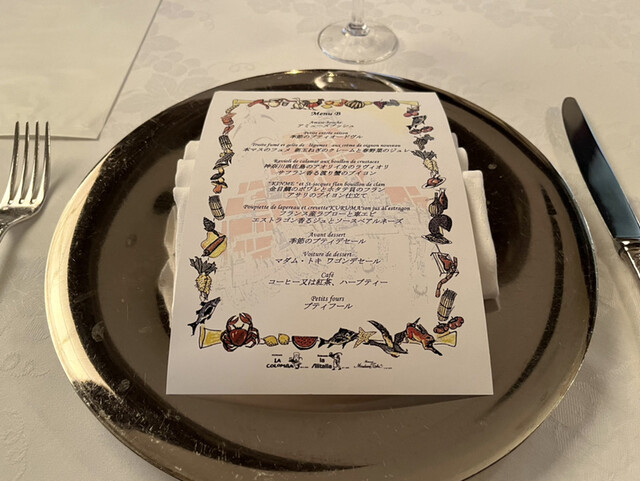 Menu B
Amuse-bouche
アミューズブッシュ
Petite entrée saison
季節のプティオードヴル
Truite fumé et gelée de légumes aux crème de oignon nouveau
水マスのフュメ 新玉ねぎのクレームと春野菜のジュレ
Ravioli de calamar aux bouillon de crustacés
神奈川県佐島のアオリイカのラヴィオリ
サフラン香る渡り蟹のブイヨン
"KINME" et St-jacques flan bouillon de clam
金目鯛のポワレとホタテ貝のフラン
アサリのブイヨン仕立て
Paupiette de lapereau et crevette"KURUMA"son jus d'estragon
フランス産ラプローと車エビ
エストラゴン香るジュとソースベアルネーズ
Avant dessert
季節のプティデセール
Voiture de dessert
マダム・トキ ワゴンデセール
Café
コーヒー又は紅茶、ハーブティー
Petits fours
プティフール
LA COLOMBA
la Altalia
Madame Toki